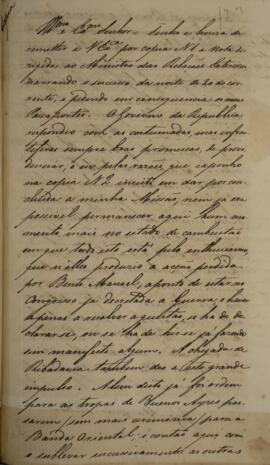 Illmo e Exmo Senhor = Tenho a honra de
remetter a V Exa por copia N.1 a Nota di-
rigida ao Ministro das Relações Exterior
narrando o successo da noite de 20 do cor-
rente, e pedindo em consequencia os meus
Passaportes. O Governo da Republica
respondeo com as costumadas, mas infru-
ctiferas sempre boas promessas, de pro-
videnciar, e eu pelas razões que exponho
na copia N.2 insisti em dar por con-
cluida a minha Missão, nem ja era
possivel permanecer aqui hum mo-
mento mais no estado de combustão
em que todo isto está pelo enthusiasmo,
que n'elles produzio a acção perdida
por Bento Manoel, a ponto de estar no
Congresso ja decretada a Guerra, e haver
apenas a resolver a questão, se ha de de-
clarar-se, ou se ha de hir-se ja fazendo
sem manifesto algum. A chegada de
Ribadavia tambem deo a isto grande
impulso. Alem disto ja foi ordem
para as tropas de Buenos Ayres pas-
sarem (sem mais ceremonia) para a
Banda Oriental, e contão aqui com
o sublevar successivamente as outras